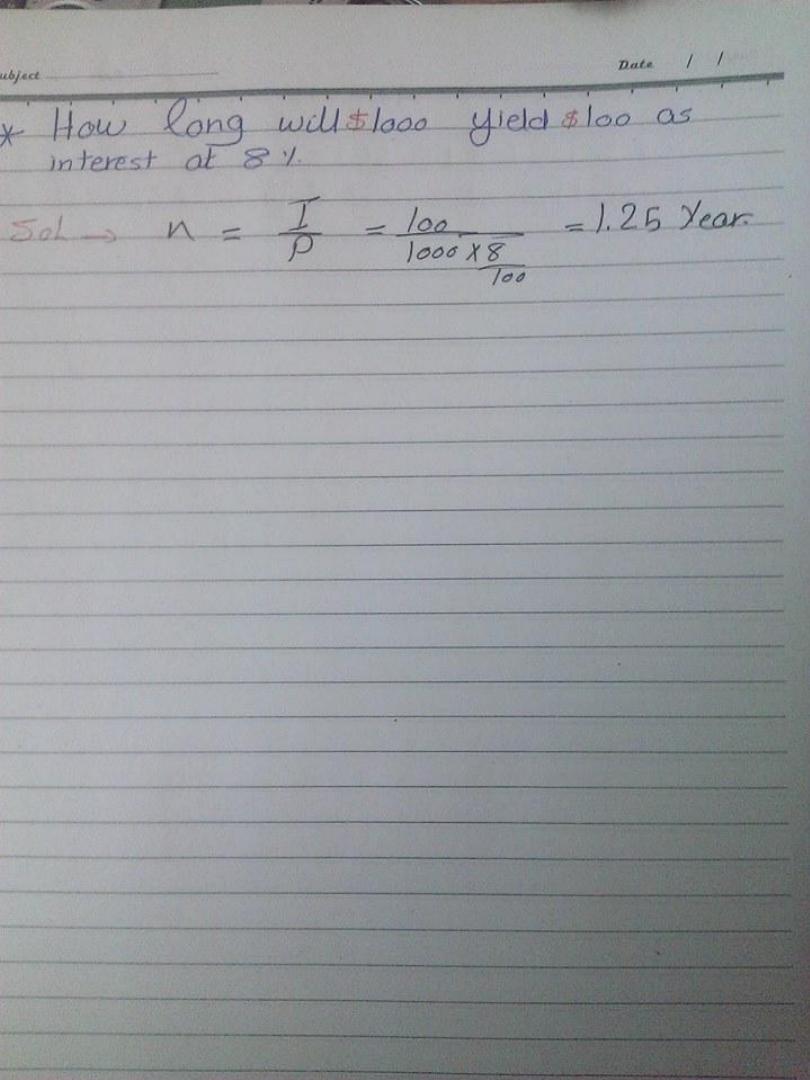 ubject
Date / /
* How long will $1000 yield $100 as
interest at 8%.
Sol → n = I/P = 100/(1000 × 8/100) = 1.25 Year.